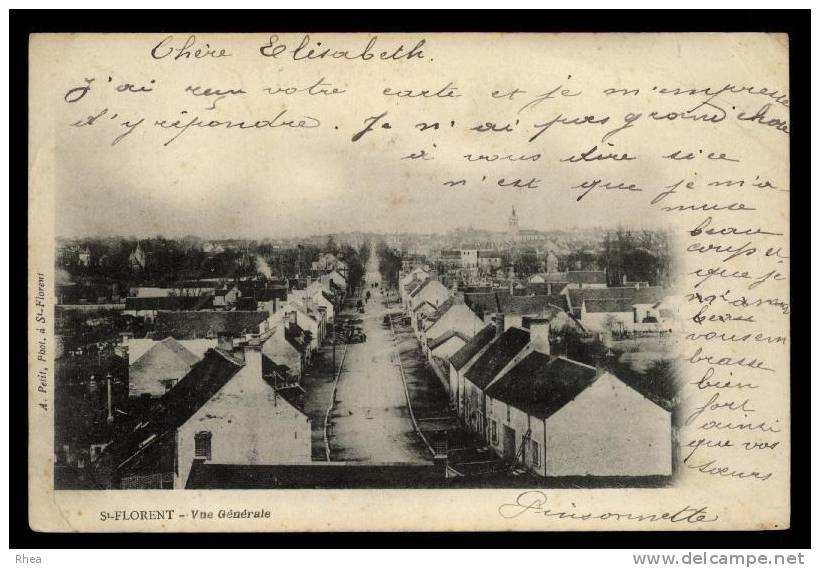 Chère Elisabeth.
J'ai reçu votre carte et je m'empresse
d'y répondre. Je n'ai pas grand chose
à vous dire si ce
n'est que je m'a-
muse
beau
coup et
que je
vous em
brasse
bien
fort
ainsi
que vos
sœurs
Pinsonnette
A. Petit, Phot. à St-Florent
St-FLORENT - Vue Générale
Rhea
www.delcampe.net